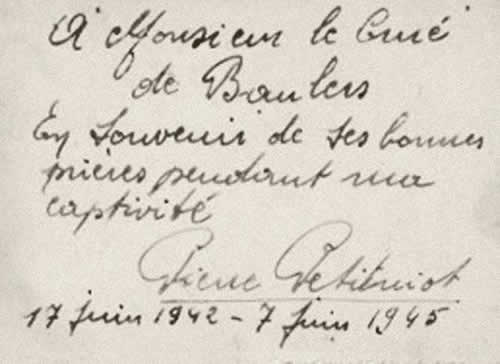 À Monsieur le Curé
de Baulers
En souvenir de ses bonnes
prières pendant ma
captivité
Pierre Petitniot
17 juin 1942 - 7 juin 1945